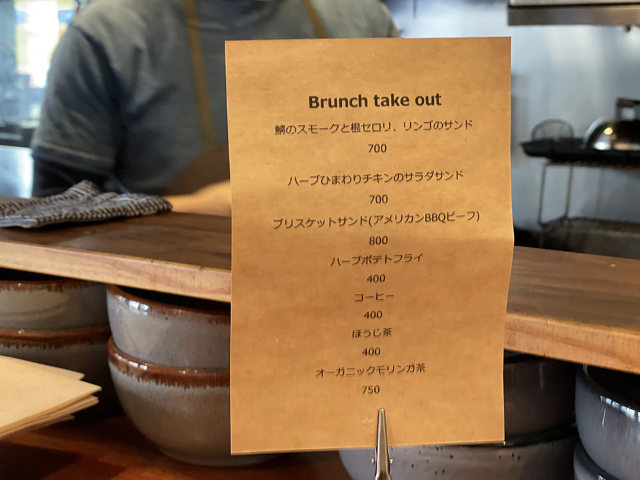 Brunch take out
鯖のスモークと根セロリ、リンゴのサンド
700
ハーブひまわりチキンのサラダサンド
700
ブリスケットサンド(アメリカンBBQビーフ)
800
ハーブポテトフライ
400
コーヒー
400
ほうじ茶
400
オーガニックモリンガ茶
750